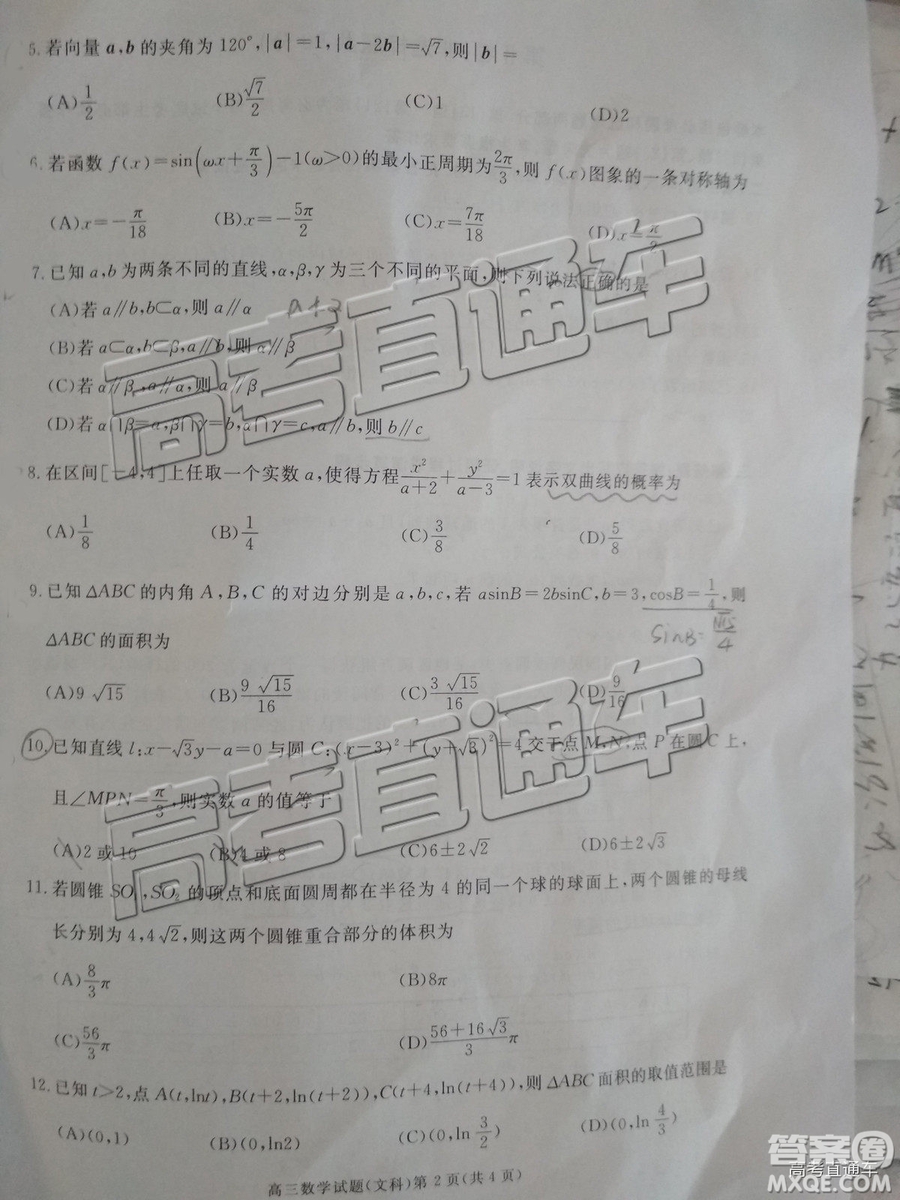 5.若向量 a,b 的夹角为 120°,|a|=1,|a-2b|=√7,则|b|=
(A)1/2 (B)√7/2 (C)1 (D)2
6.若函数 f(x)=sin(ωx+π/3)-1(ω>0)的最小正周期为2π/3,则 f(x)图象的一条对称轴为
(A)x=-π/18 (B)x=-5π/2 (C)x=7π/18 (D)x=π/2
7.已知 a,b 为两条不同的直线,α,β,γ 为三个不同的平面,则下列说法正确的是
(A)若 a∥b,b⊂α,则 a∥α
(B)若 a⊂α,b⊂β,a∥b,则 α∥β
(C)若 α∥β,a∥α,则 a∥β
(D)若 α∩β=a,β∩γ=b,α∩γ=c,a∥b,则 b∥c
8.在区间[-4,4]上任取一个实数 a,使得方程x²/(a+2)+y²/(a-3)=1 表示双曲线的概率为
(A)1/8 (B)1/4 (C)3/8 (D)5/8
9.已知 △ABC 的内角 A,B,C 的对边分别是 a,b,c,若 asinB=2bsinC,b=3,cosB=1/4,则
△ABC 的面积为
sinB=√15/4
(A)9√15 (B)9√15/16 (C)3√15/16 (D)9/16
10.已知直线 l:x-√3y-a=0 与圆 C:(x-3)²+(y+√3)²=4 交于点 M,N,点 P 在圆 C 上,
且∠MPN=π/3,则实数 a 的值等于
(A)2 或 10 (B)4 或 8 (C)6±2√2 (D)6±2√3
11.若圆锥 SO₁,SO₂ 的顶点和底面圆周都在半径为 4 的同一个球的球面上,两个圆锥的母线
长分别为 4,4√2,则这两个圆锥重合部分的体积为
(A)8/3π (B)8π
(C)56/3π (D)(56+16√3)/3π
12.已知 t>2,点 A(t,lnt),B(t+2,ln(t+2)),C(t+4,ln(t+4)),则 △ABC 面积的取值范围是
(A)(0,1) (B)(0,ln2) (C)(0,ln 3/2) (D)(0,ln 4/3)
高三数学试题(文科)第 2 页(共 4 页)
高考直通车
高考直通车
答案圈
高考直通车
MXQE.COM